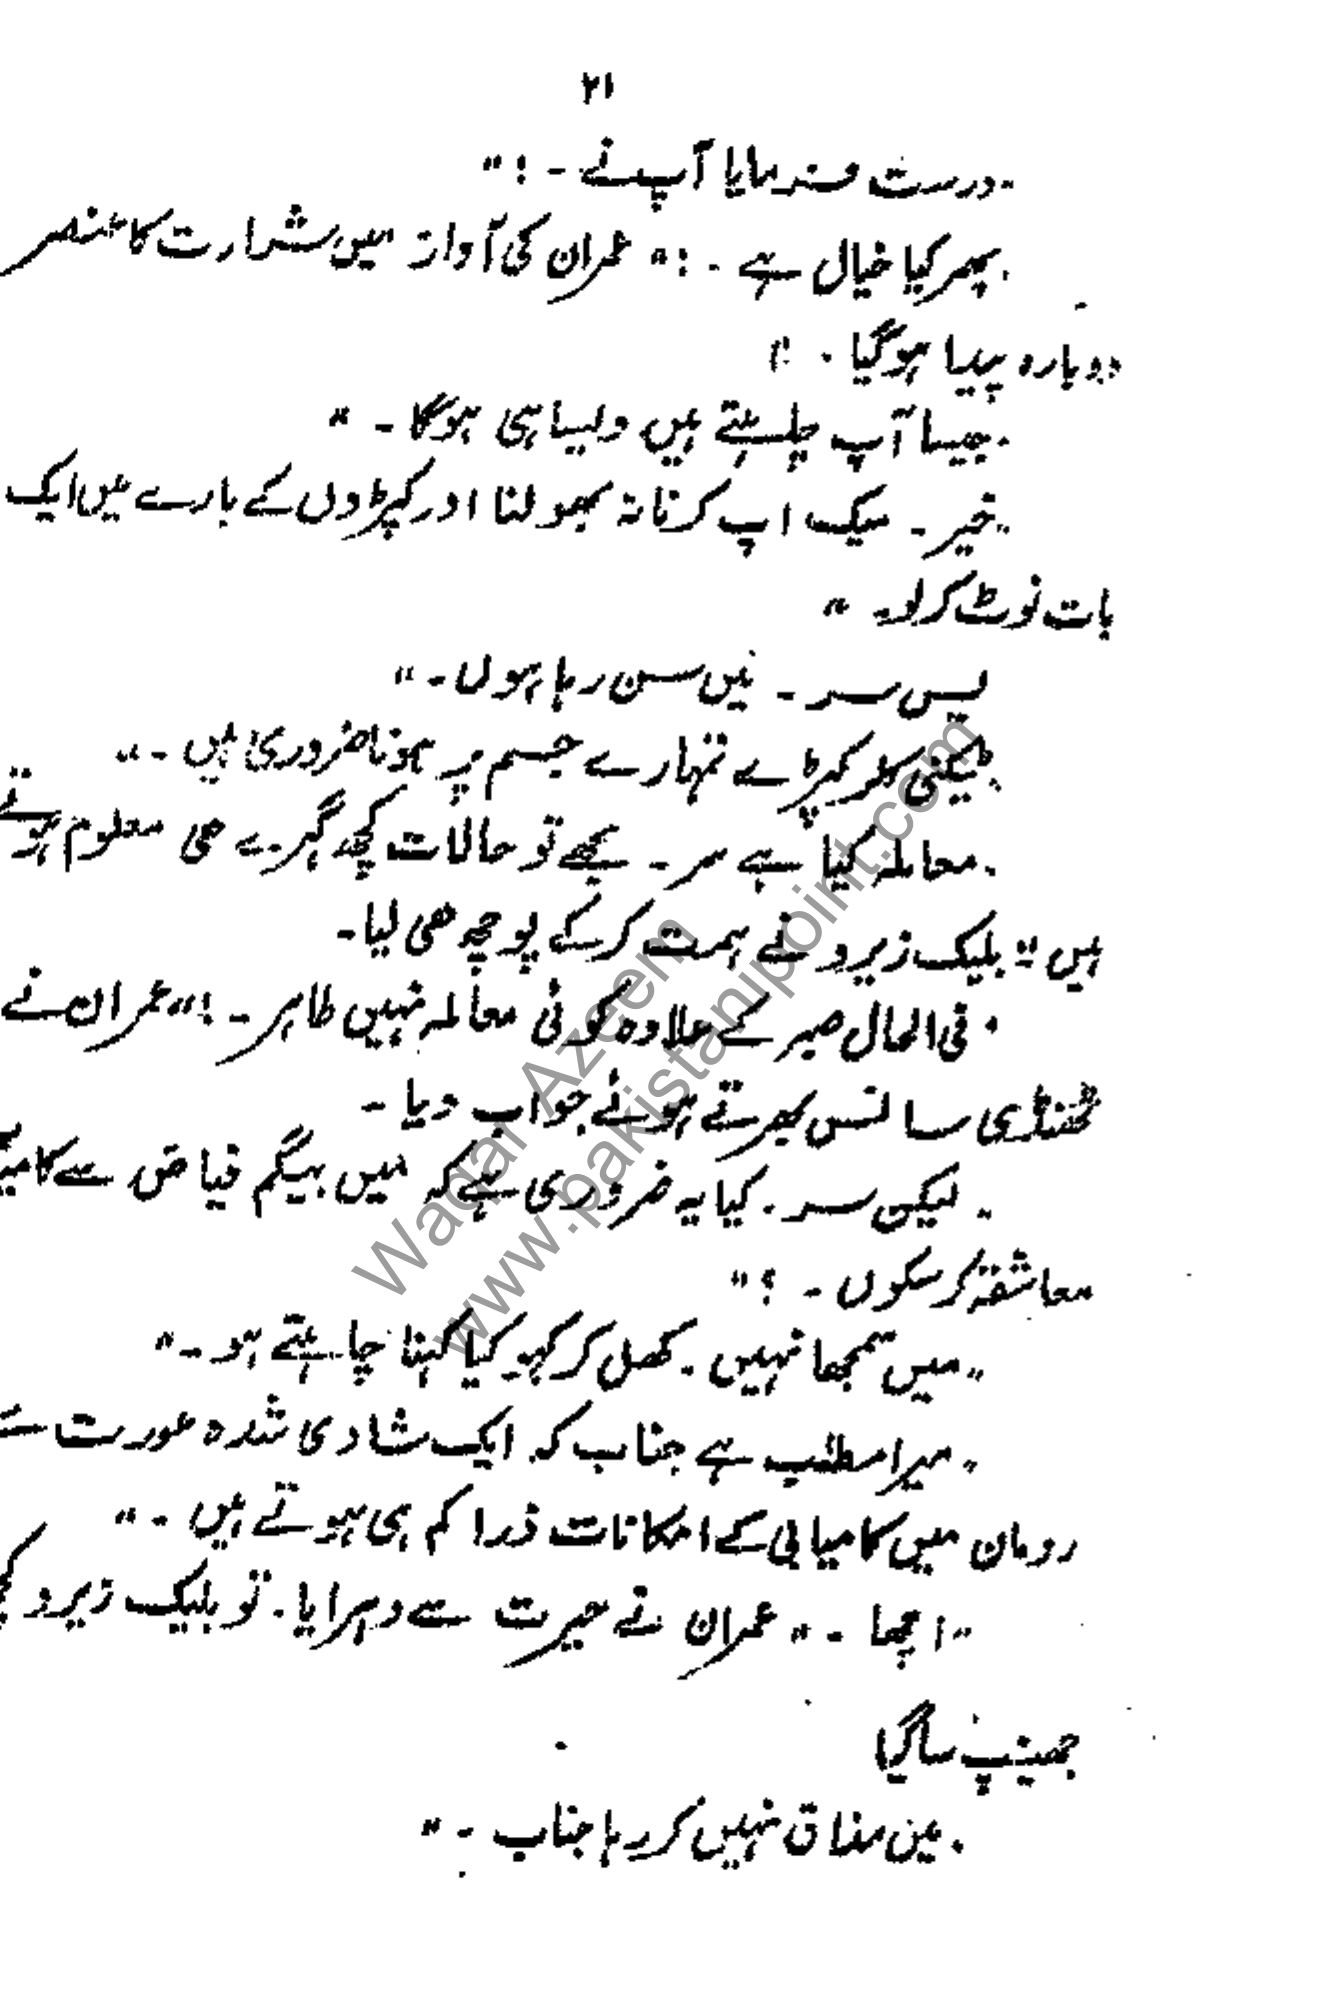 ۲۱
"درست فرمایا آپ نے۔!"
"پھر کیا خیال ہے۔!" عمران کی آواز میں شرارت کا عنصر
دوبارہ پیدا ہوگیا۔!"
"جیسا آپ چاہتے ہیں ویسا ہی ہوگا۔"
"خیر۔ میک اپ کرنا نہ بھولنا اور کپڑوں کے بارے میں ایک
بات نوٹ کرلو۔"
یس سر۔ میں سن رہا ہوں۔"
"ٹیکنی کلر کپڑے تمہارے جسم پر ہونا ضروری ہیں۔"
"معاملہ کیا ہے سر۔ مجھے تو حالات کچھ گہرے ہی معلوم ہوتے
ہیں" بلیک زیرو نے ہمت کرکے پوچھ ہی لیا۔
"فی الحال صبر کے علاوہ کوئی معاملہ نہیں طاہر۔!" عمران نے
ٹھنڈی سانس بھرتے ہوئے جواب دیا۔
"لیکن سر۔ کیا یہ ضروری ہے کہ میں بیگم فیاض سے
معاشقہ کرسکوں۔؟"
"میں سمجھا نہیں۔ کھل کر کہو کیا کہنا چاہتے ہو۔"
"میرا مطلب ہے جناب کہ ایک شادی شدہ عورت سے
رومان میں کامیابی کے امکانات ذرا کم ہی ہوتے ہیں۔"
"اچھا۔" عمران نے حیرت سے دہرایا۔ تو بلیک زیرو کچھ
جھینپ سا گیا
"میں مذاق نہیں کر رہا جناب۔"
Waqar Azeem
www.pakistanipoint.com